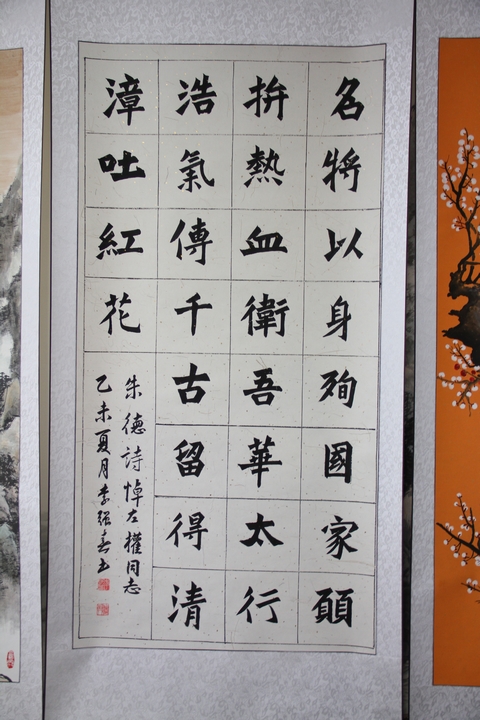 名將以身殉國家願
拚熱血衛吾華太行
浩氣傳千古留得清
漳吐紅花
朱德詩悼左權同志
乙未夏月李强书